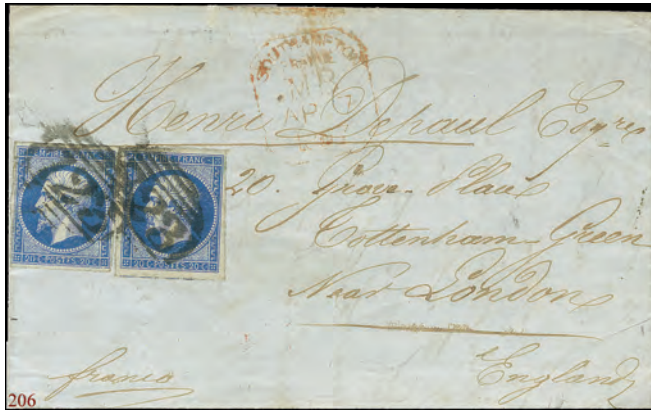 SOUTHAMPTON
AP 7
Henri Depaul Esqre
20. Grove Place
Tottenham Green
Near London
England
franco
EMPIRE FRANC
EMPIRE FRANC
20 C POSTES 20 C
20 C POSTES 20 C
206